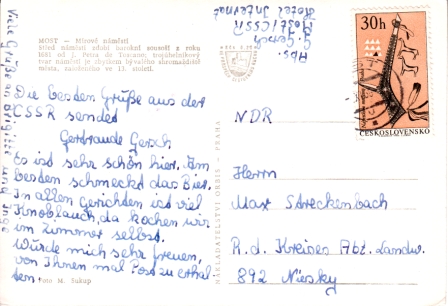 MOST — Mírové náměstí
Střed náměstí zdobí barokní sousoší z roku
1681 od J. Petra de Toscano; trojúhelníkový
tvar náměstí je zbytkem bývalého shromaždiště
města, založeného ve 13. století.
Viele Grüße an Brigitte und Inge
Abs.
G. Gersch
Most/CSSR
Hotel Internat.
30h
ČESKOSLOVENSKO
Die besten Grüße aus der
CSSR sendet
Gertraude Gersch
Es ist sehr schön hier. Am
besten schmeckt das Bier.
In allen Gerichten ist viel
Knoblauch, da kochen wir
im Zimmer selbst.
Würde mich sehr freuen,
von Ihnen mal Post zu erhal
ten.
Foto M. Sukup
NAKLADATELSTVÍ ORBIS - PRAHA
NDR
Herrn
Max Streckenbach
R.d. Kreises Abt. Landw.
892 Niesky